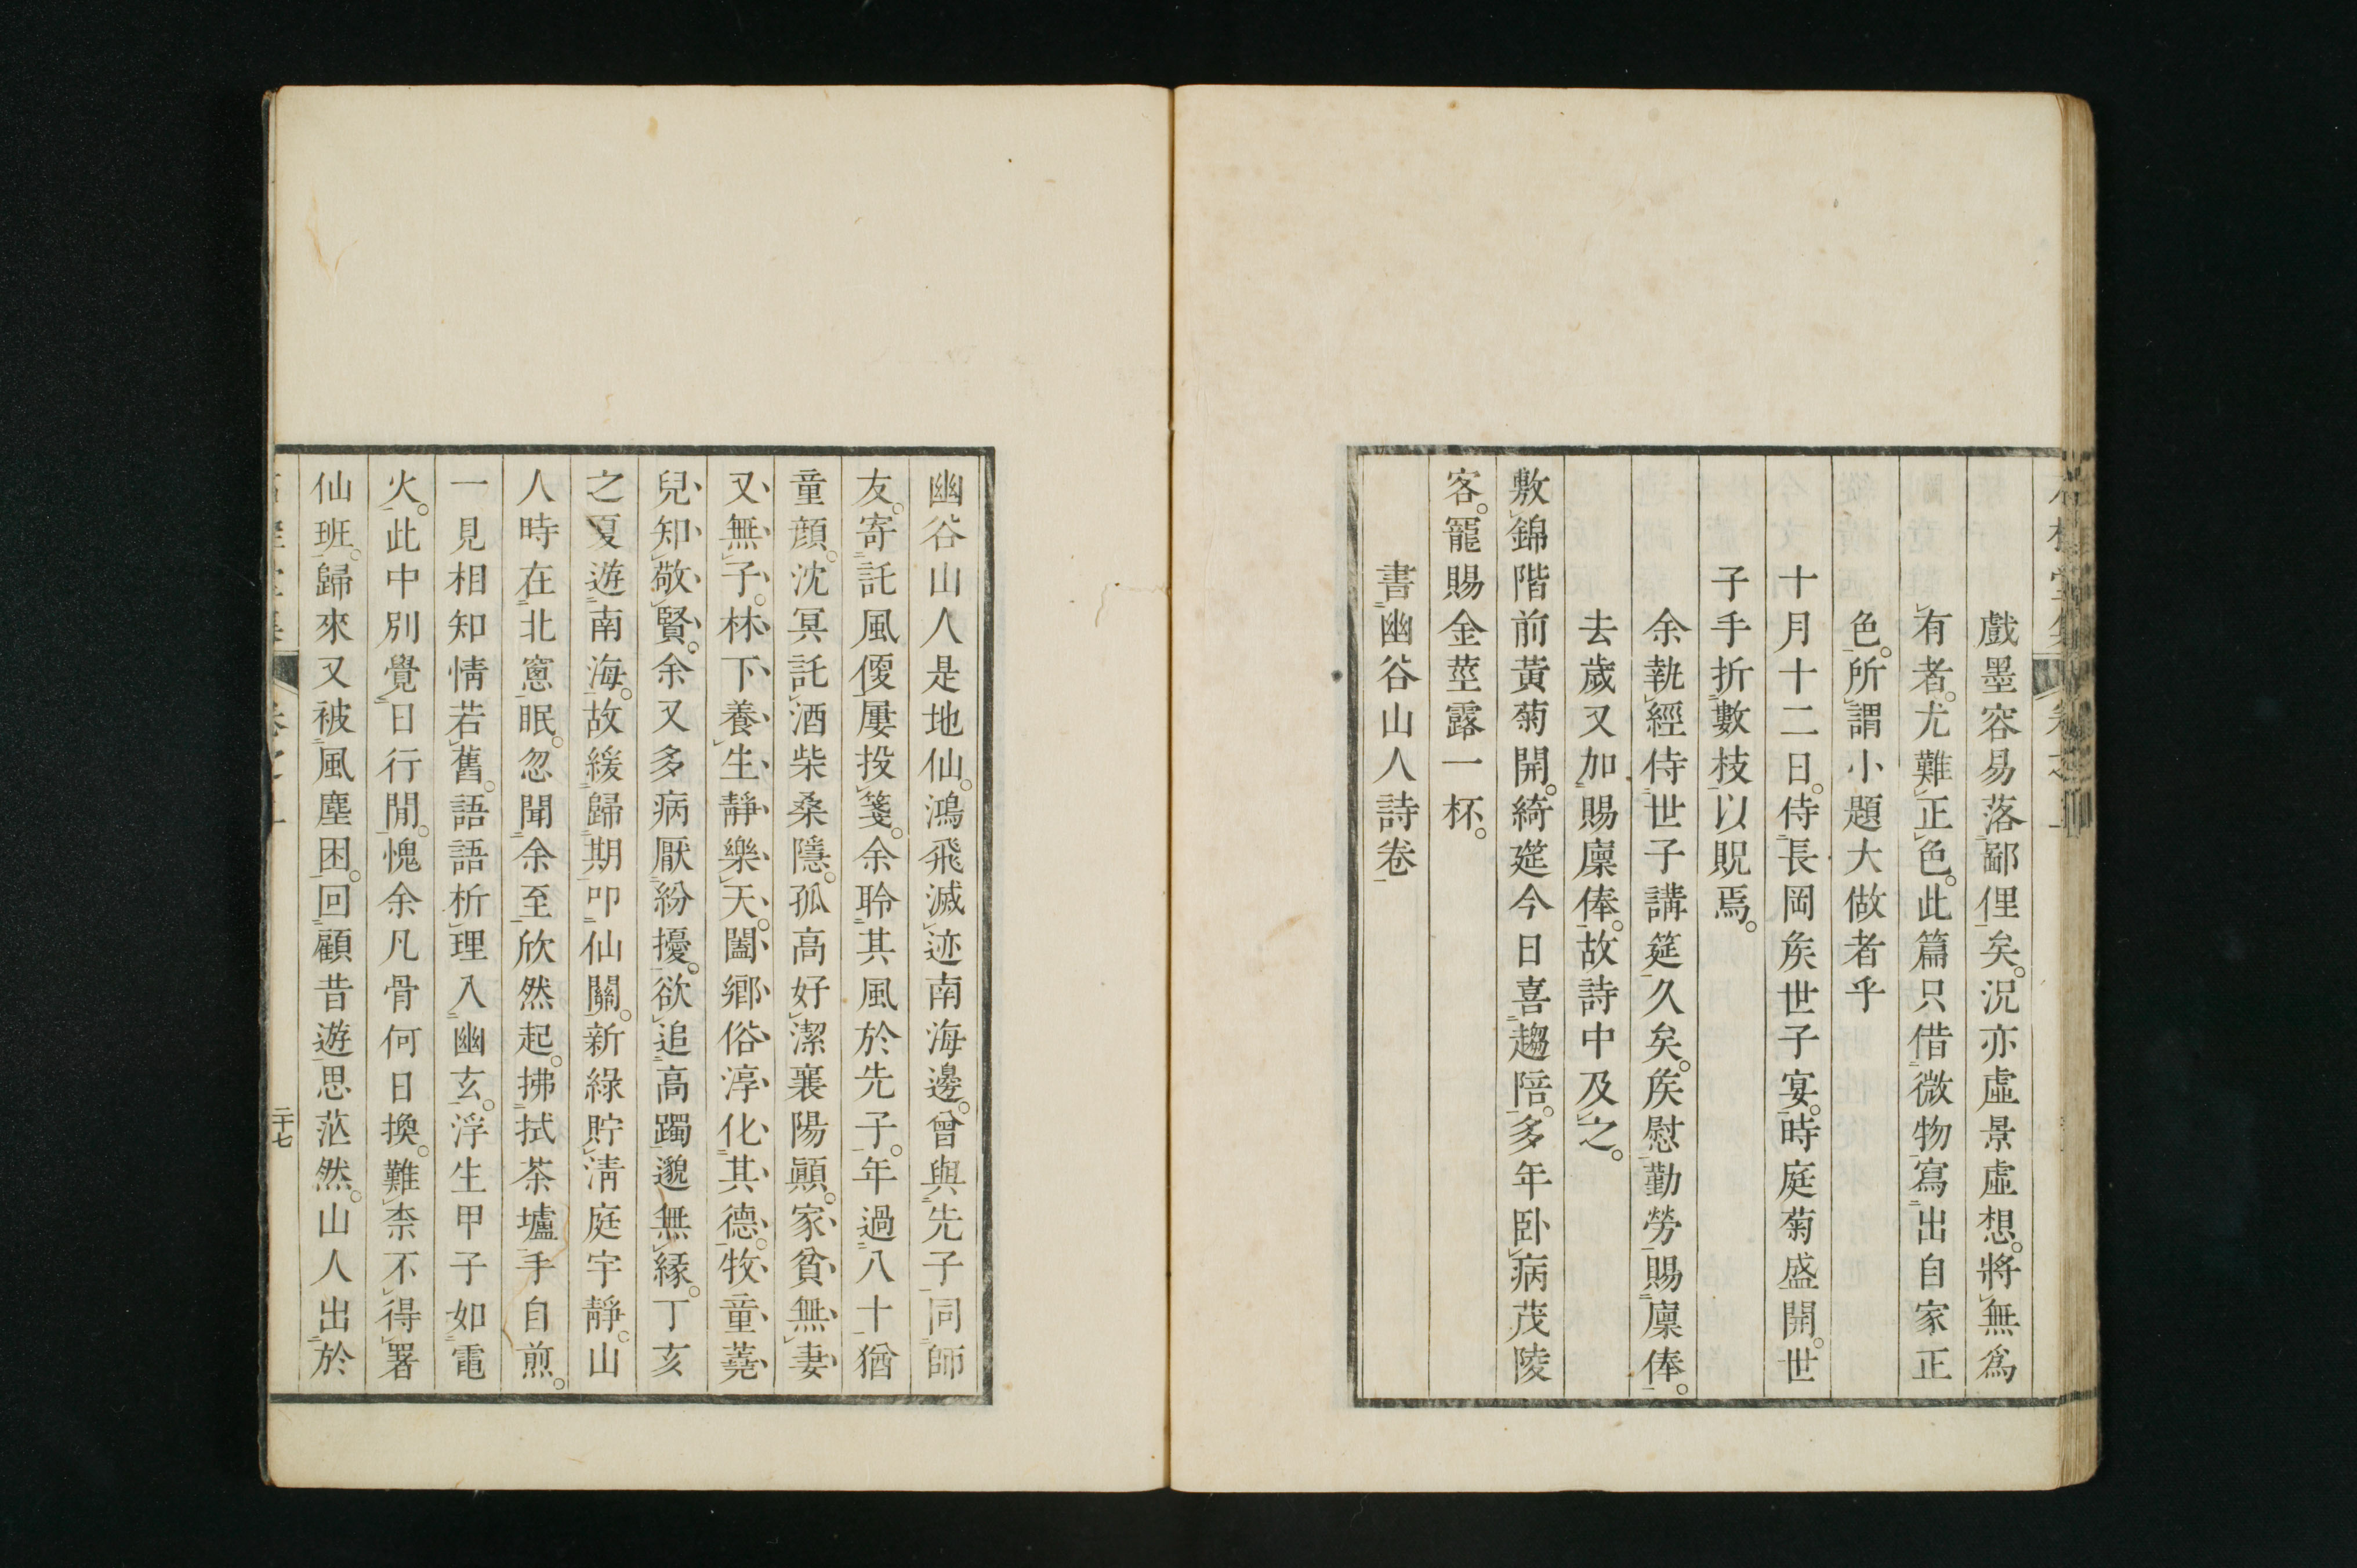 戲墨容易落鄙俚矣。況亦虛景虛想。將無爲
有者。尤難正色。此篇只借微物寫出自家正
色。所謂小題大做者乎
十月十二日。侍長岡矦世子宴。時庭菊盛開。世
子手折數枝以貺焉。
余執經侍世子講筵久矣。矦慰勤勞賜廩俸。
去歲又加賜廩俸。故詩中及之。
敷錦階前黃菊開。綺筵今日喜趨陪。多年卧病茂陵
客。寵賜金莖露一杯。
書幽谷山人詩卷
幽谷山人是地仙。鴻飛滅迹南海邊。曾與先子同師
友。寄託風僾屢投箋。余聆其風於先子。年過八十猶
童顔。沈冥託酒柴桑隱。孤高好潔襄陽顚。家貧無妻
又無子。林下養生靜樂天。闔鄉俗淳化其德。牧童蕘
兒知敬賢。余又多病厭紛擾。欲追高躅邈無緣。丁亥
之夏遊南海。故緩歸期叩仙關。新綠貯淸庭宇靜。山
人時在北窻眠。忽聞余至欣然起。拂拭茶壚手自煎。
一見相知情若舊。語語析理入幽玄。浮生甲子如電
火。此中別覺日行閒。愧余凡骨何日換。難柰不得署
仙班。歸來又被風塵困。回顧昔遊思茫然。山人出於
二十七